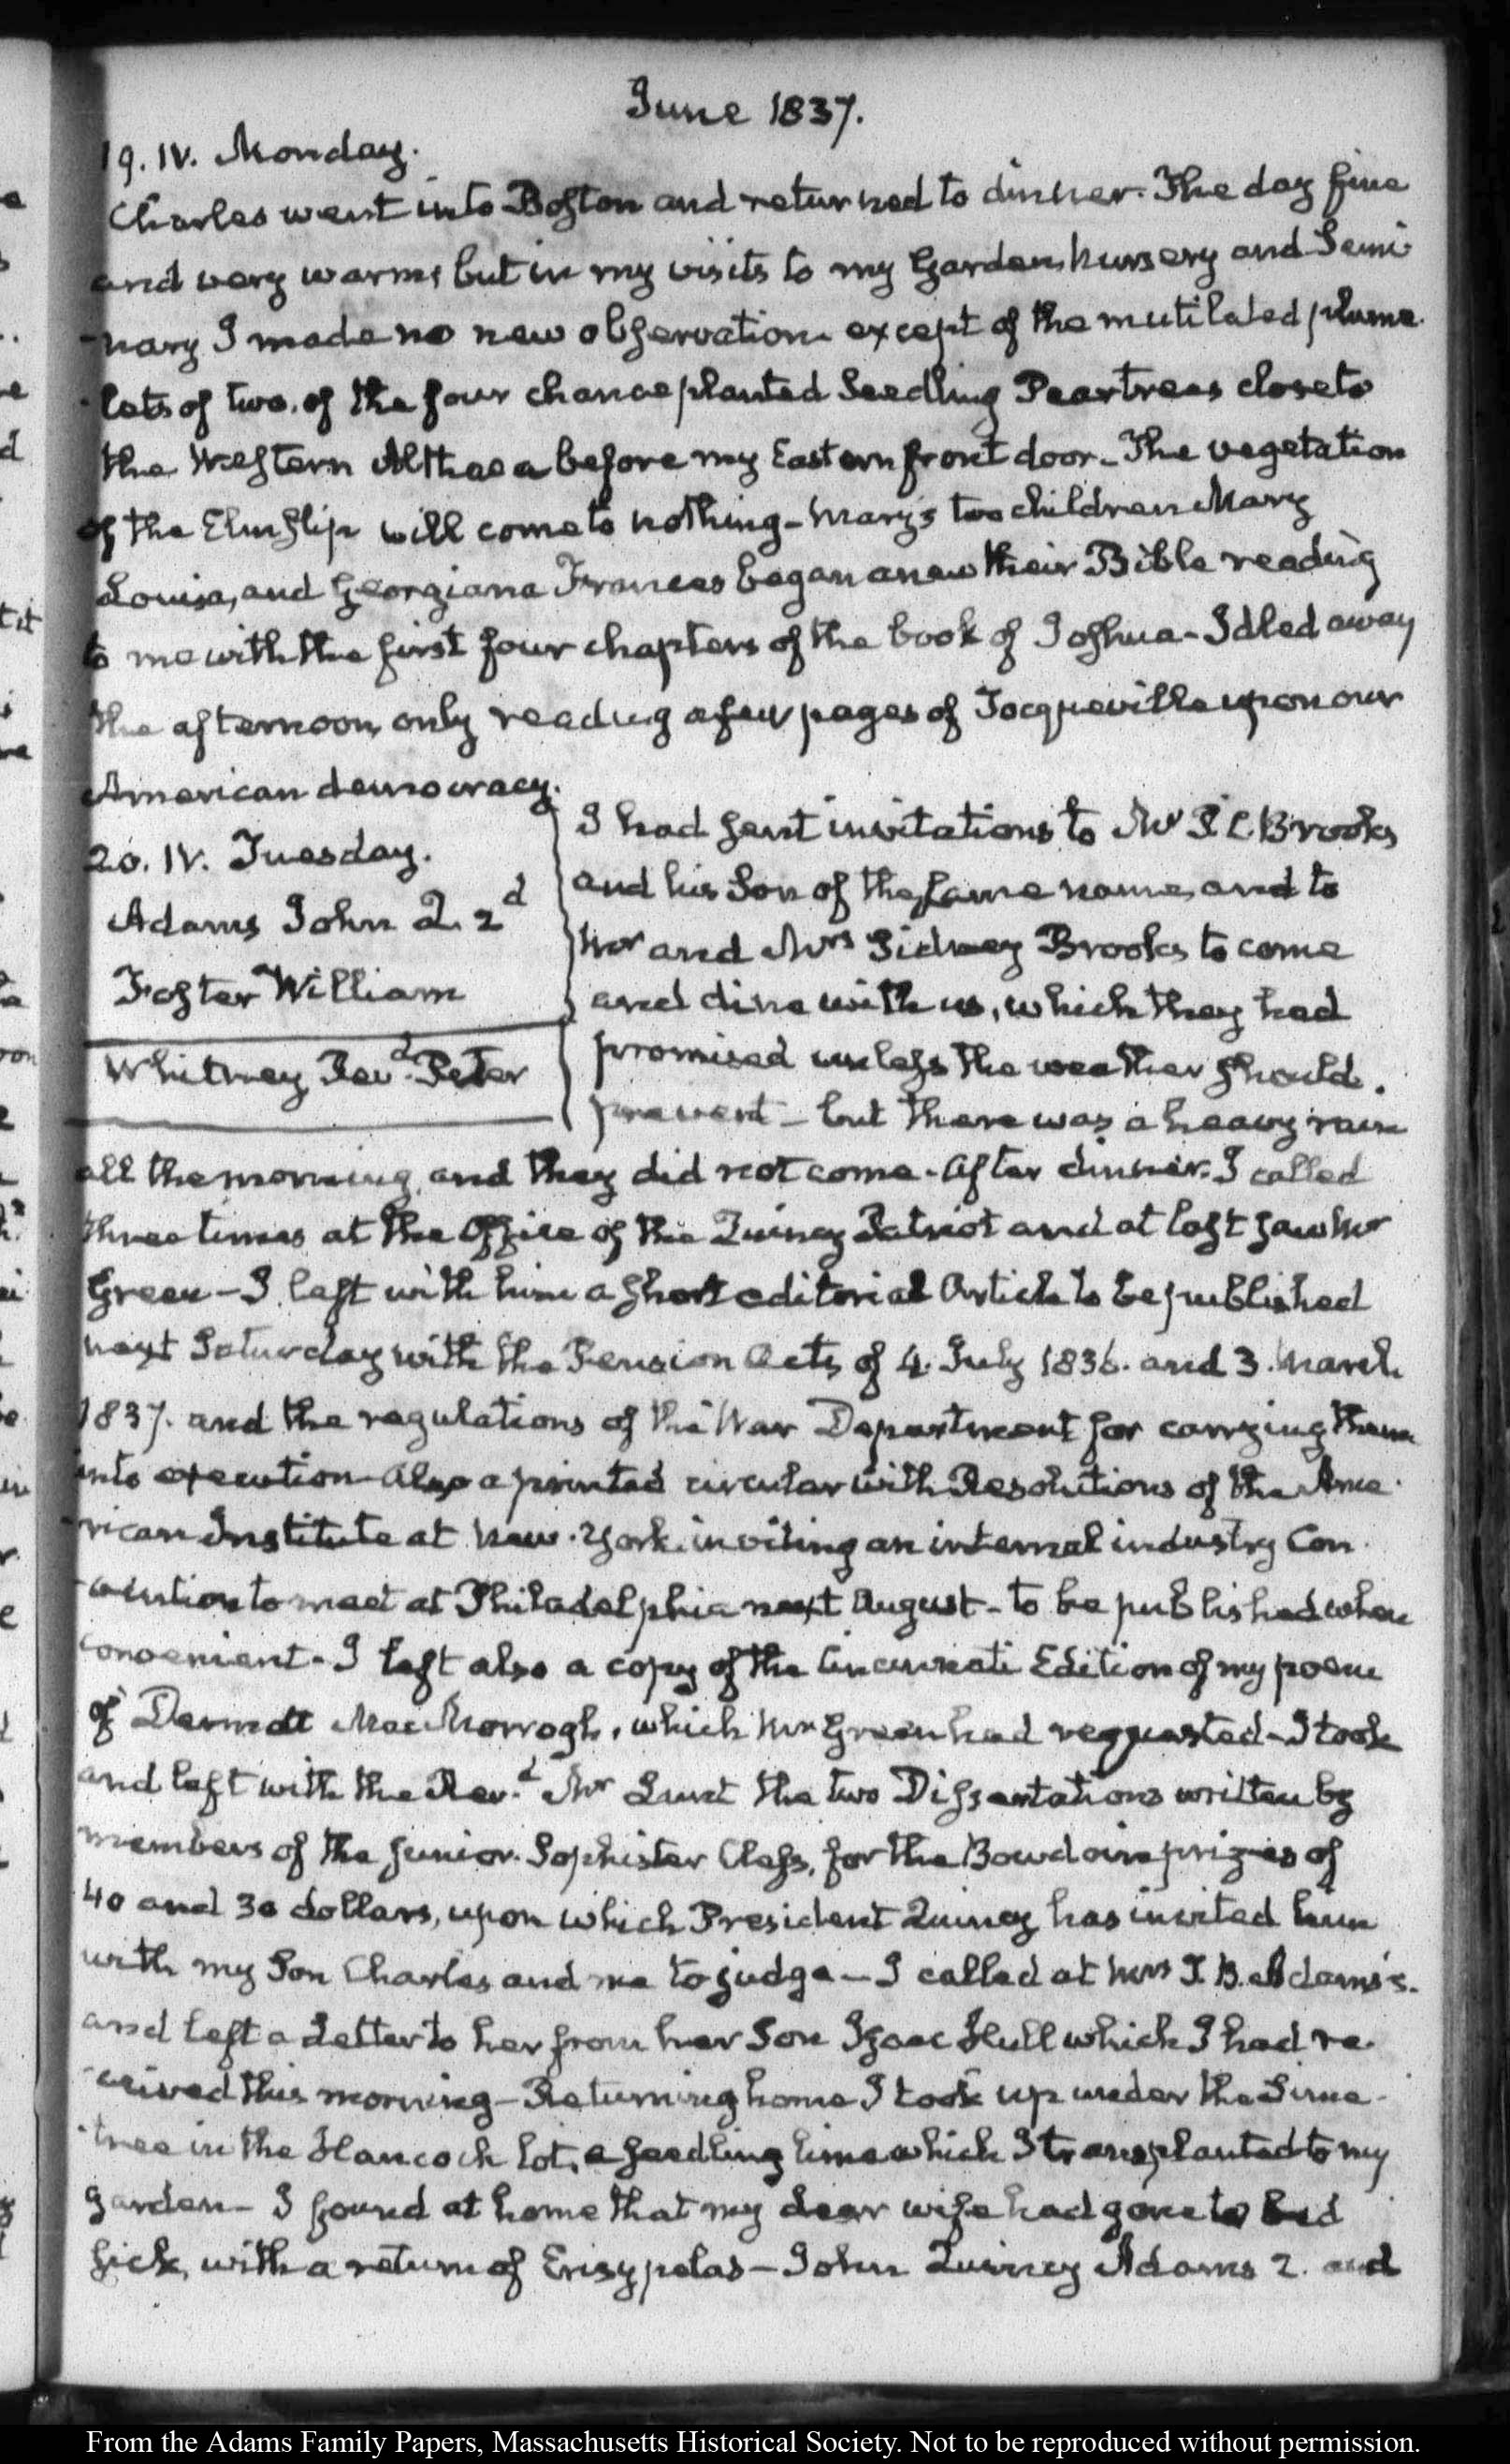 June 1837.
19. IV. Monday.
Charles went into Boston and returned to dinner. The day fine
and very warm, but in my visits to my Garden, Nursery and Semi-
-nary I made no new observation except of the mutilated plume-
-lets of two, of the four chance planted Seedling Peartrees close to
the Western Althaea before my Eastern front door. The vegetation
of the Elm slip will come to nothing - Mary's two children Mary
Louisa, and Georgiana Frances began anew their Bible reading
to me with the first four chapters of the book of Joshua - Idled away
the afternoon, only reading a few pages of Tocqueville upon our
American democracy.
20. IV. Tuesday.
Adams John Q. 2d
Foster William
Whitney Revd. Peter
I had sent invitations to Mr P. C. Brooks
and his Son of the same name, and to
Mr and Mrs Sidney Brooks to come
and dine with us, which they had
promised unless the weather should
prevent - but there was a heavy rain
all the morning, and they did not come. After dinner I called
three times at the Office of the Quincy Patriot and at last saw Mr
Green - I left with him a short editorial Article to be published
next Saturday with the Pension Acts of 4. July 1836. and 3. March
1837. and the regulations of the War Department for carrying them
into execution - Also a printed circular with Resolutions of the Ame-
-rican Institute at New-York inviting an internal industry Con-
-vention to meet at Philadelphia next August - to be published when
convenient - I left also a copy of the Cincinnati Edition of my poem
of Dermot MacMorrogh, which Mr Green had requested - I took
and left with the Revd. Mr Lunt the two Dissertations written by
members of the junior Sophister Class, for the Bowdoin prizes of
40 and 30 dollars, upon which President Quincy has invited him
with my Son Charles and me to judge - I called at Mrs T. B. Adams's.
and left a Letter to her from her Son Isaac Hull which I had re-
-ceived this morning - Returning home I took up under the Lime-
-tree in the Hancock lot, a seedling lime which I transplanted to my
garden - I found at home that my dear wife had gone to bed
sick, with a return of Erisypelas - John Quincy Adams 2. and
From the Adams Family Papers, Massachusetts Historical Society. Not to be reproduced without permission.